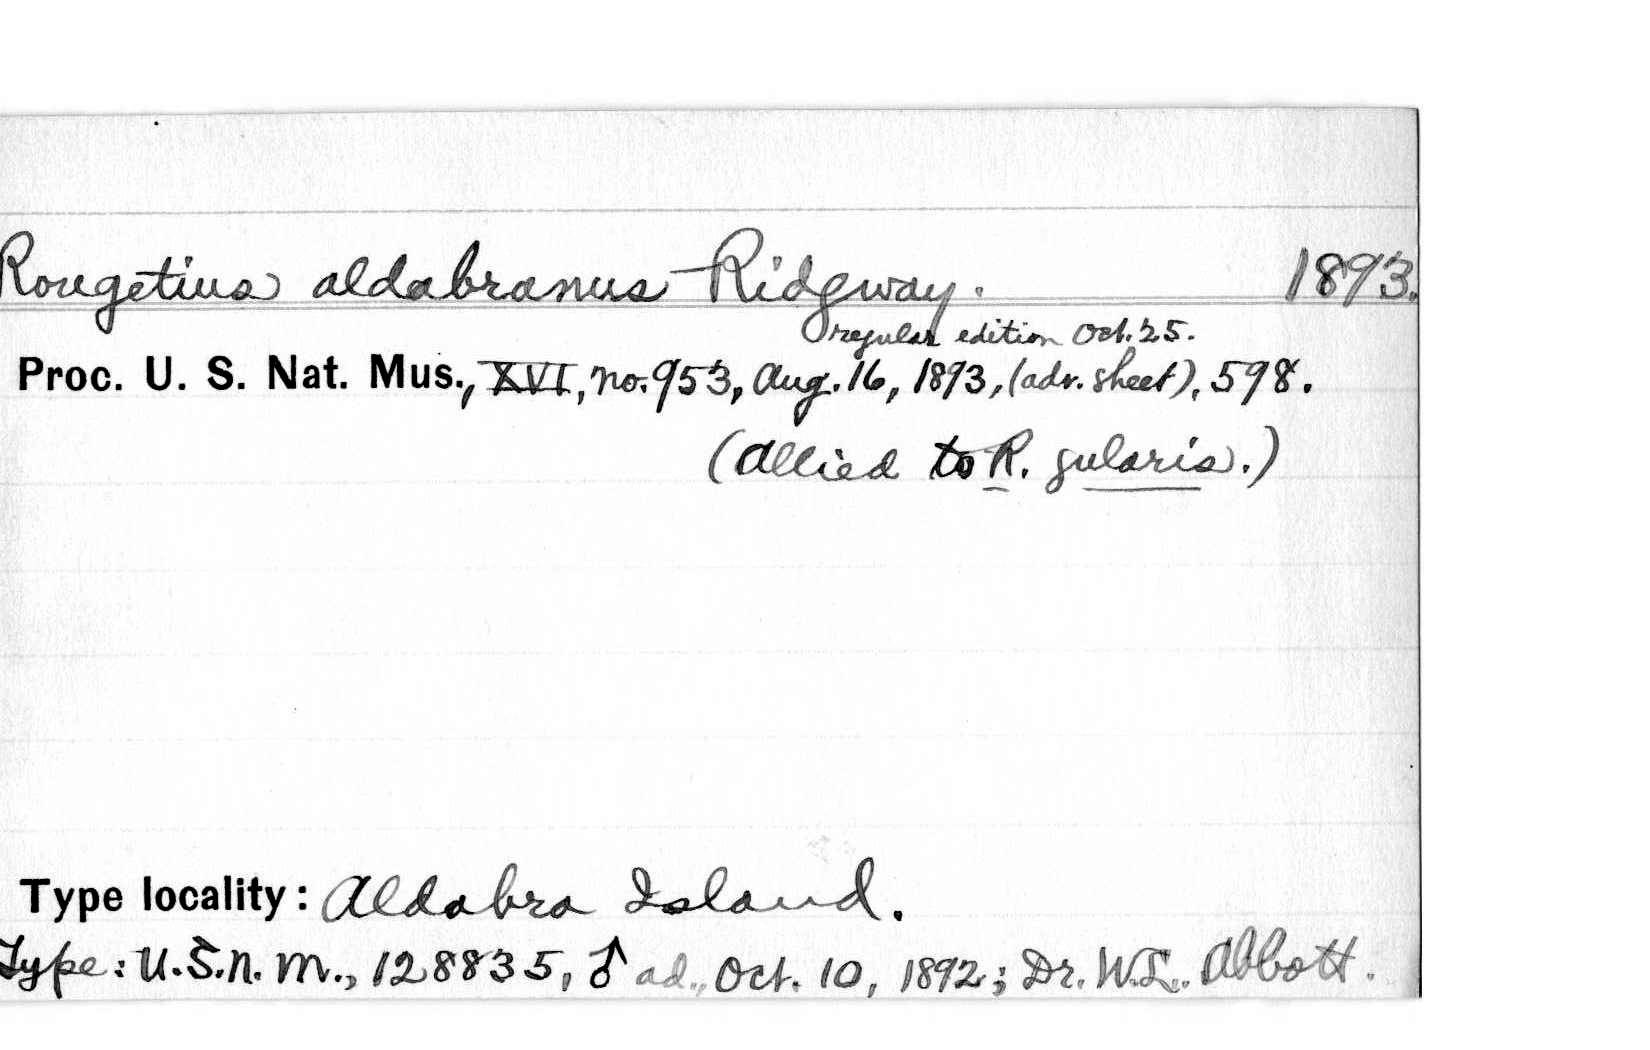 Rougetius aldabranus Ridgway. 1893.
regular edition Oct. 25.
Proc. U. S. Nat. Mus., XVI, no. 953, Aug. 16, 1893, (adv. sheet), 598.
(Allied to R. gularis.)
Type locality: Aldabra Island.
Type: U.S.N.M., 128835, ♂ ad., Oct. 10, 1892; Dr. W.L. Abbott.